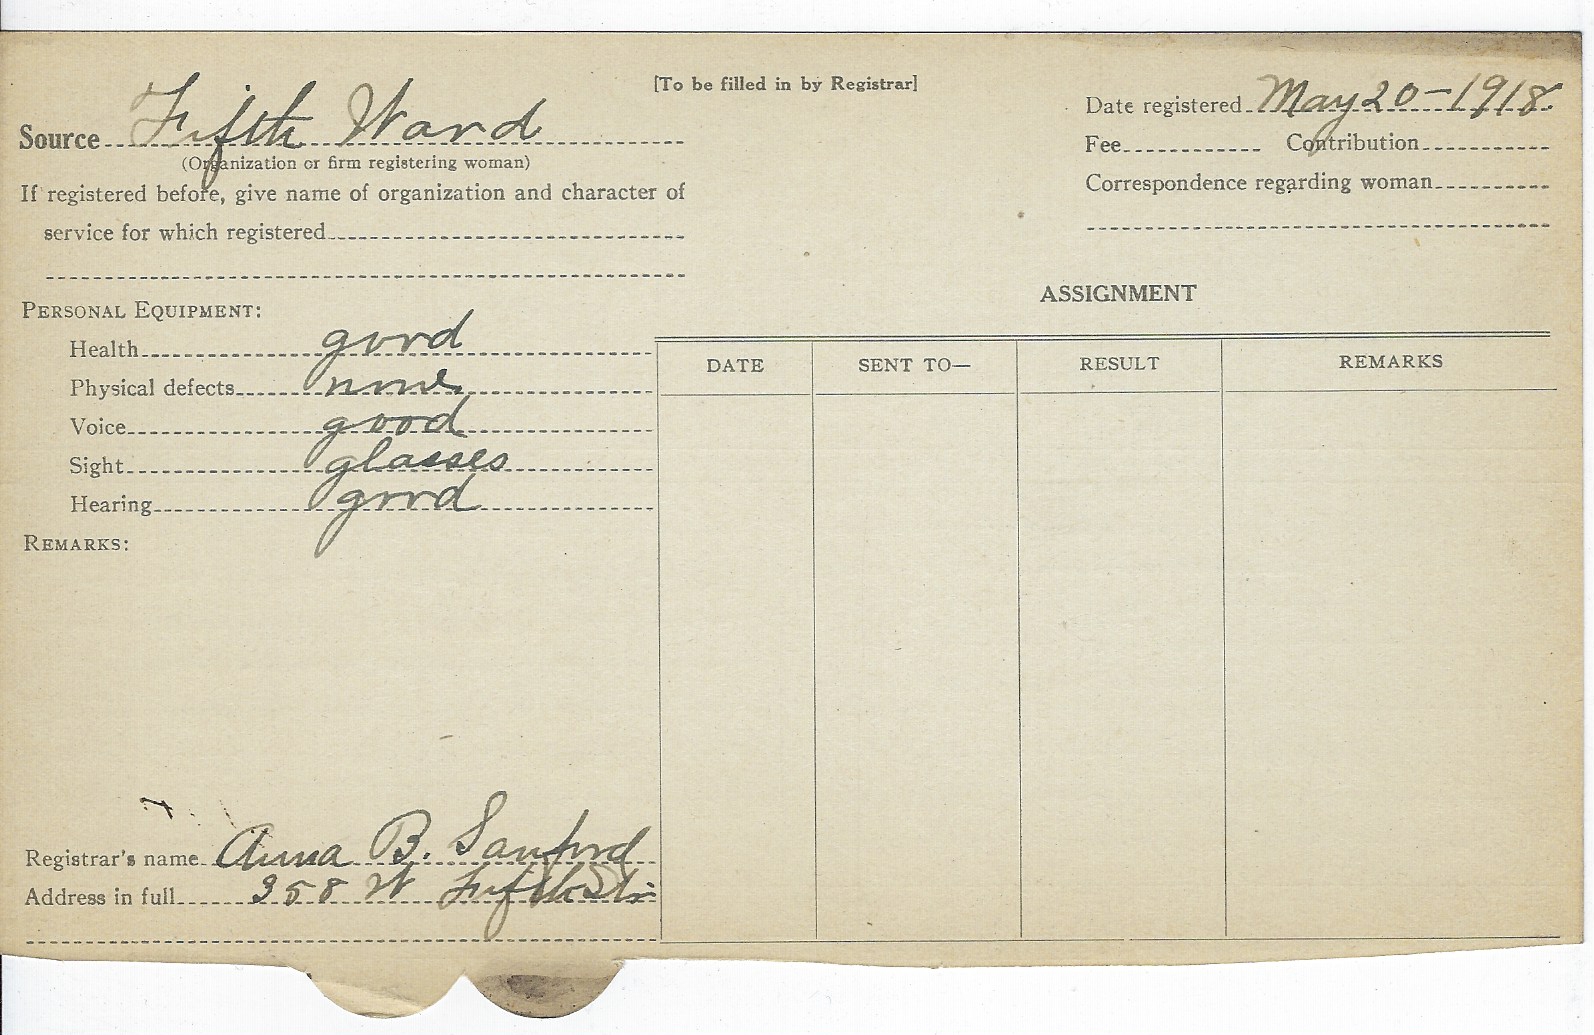 [To be filled in by Registrar]
Source Fifth Ward
(Organization or firm registering woman)
If registered before, give name of organization and character of
service for which registered
Date registered May 20-1918.
Fee Contribution
Correspondence regarding woman
PERSONAL EQUIPMENT:
Health good
Physical defects none
Voice good
Sight glasses
Hearing good
REMARKS:
Registrar's name Anna B. Sanford
Address in full 358 W Fifth Str
ASSIGNMENT
DATE SENT TO— RESULT REMARKS